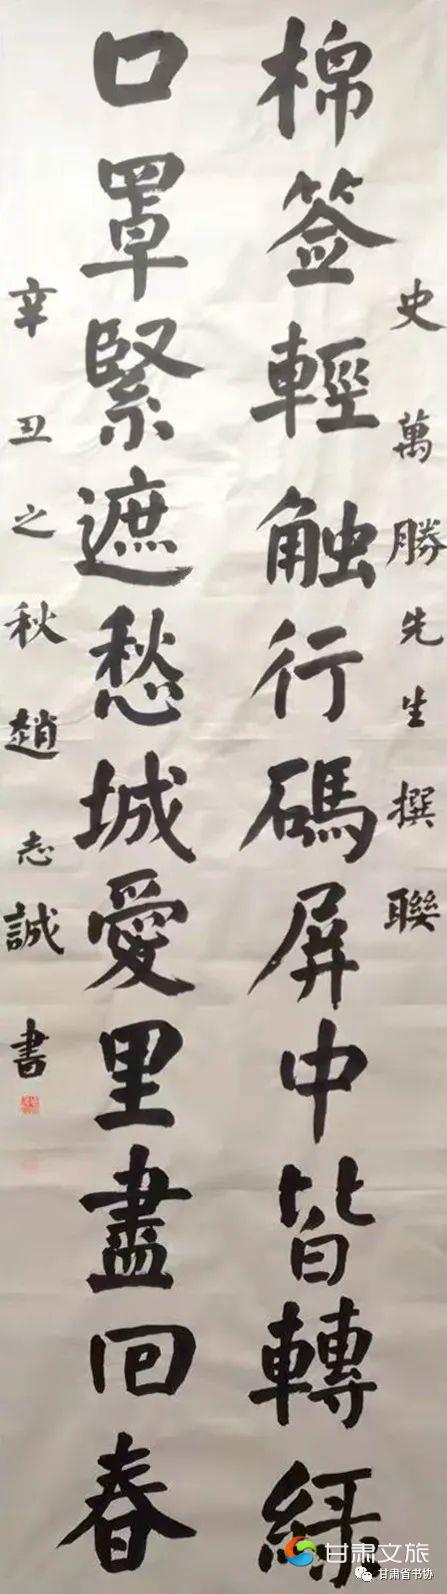 史萬勝先生撰聯
棉签輕触行碼屏中皆轉緑
口罩緊遮愁城愛里盡回春
辛丑之秋趙志誠書
甘肃文旅
甘肃省书协